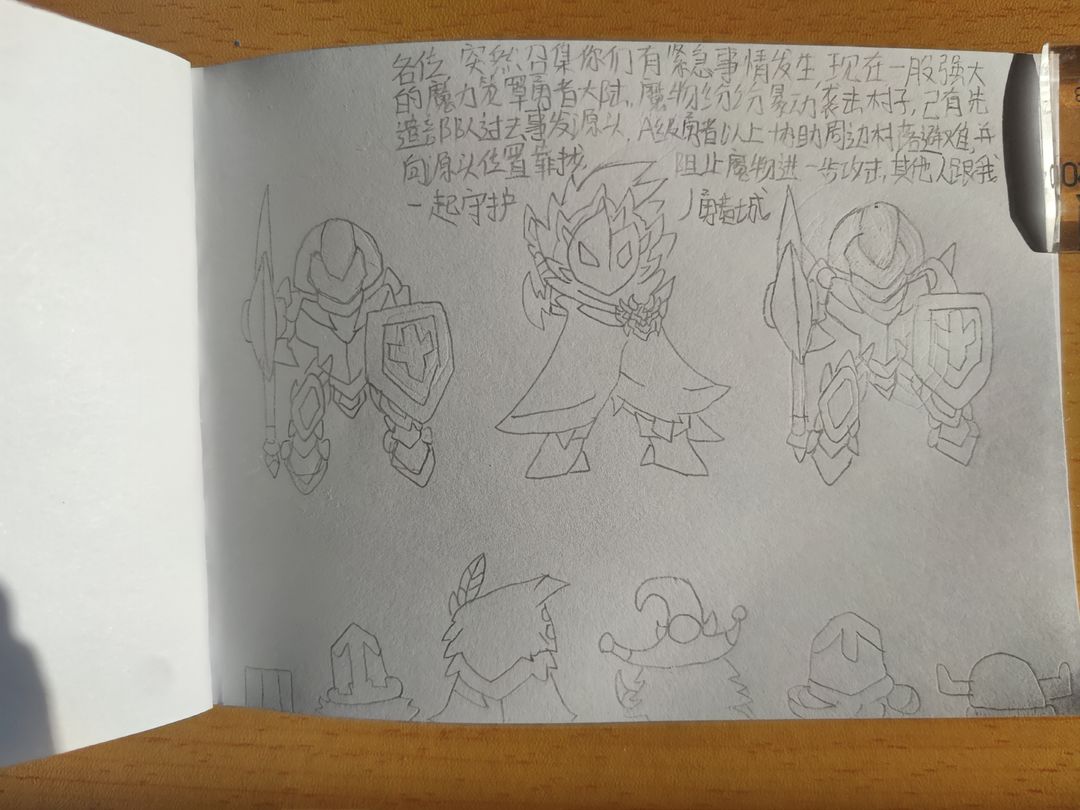 各位 突然召集你们有紧急事情发生 现在一股强大
的魔力笼罩勇者大陆,魔物纷纷暴动袭击村子,已有先
遣部队过去事发源头,A级勇者以上协助周边村落避难,并
向源头位置靠拢 阻止魔物进一步攻击,其他人跟我
一起守护 勇者城